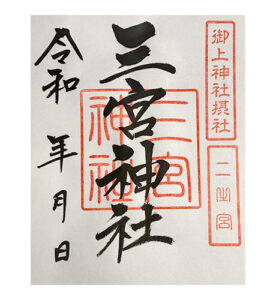 御上神社摂社
二之宮
三宮神社
三宮
神社
令和 年 月 日